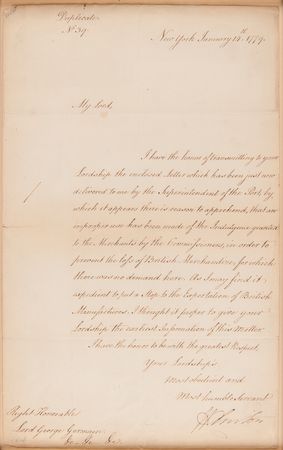 Duplicate
No. 39.
New York January 18th 1779.
My Lord,
I have the honor of transmitting to your
Lordship the enclosed Letter which has been just now
delivered to me by the Superintendent of the Port, by
which it appears there is reason to apprehend, that an
improper use has been made of the Indulgence granted
to the Merchants by the Commissioners, in order to
prevent the loss of British Merchandize, for which
there was no demand here. As I may find it
expedient to put a Stop to the Exportation of British
Manufactures, I thought it proper to give your
Lordship the earliest Information of this Matter.
I have the honor to be with the greatest Respect,
Your Lordship's
Most obedient and
Most humble Servant
H Clinton
Right Honorable
Lord George Germain
&c. &c. &c.